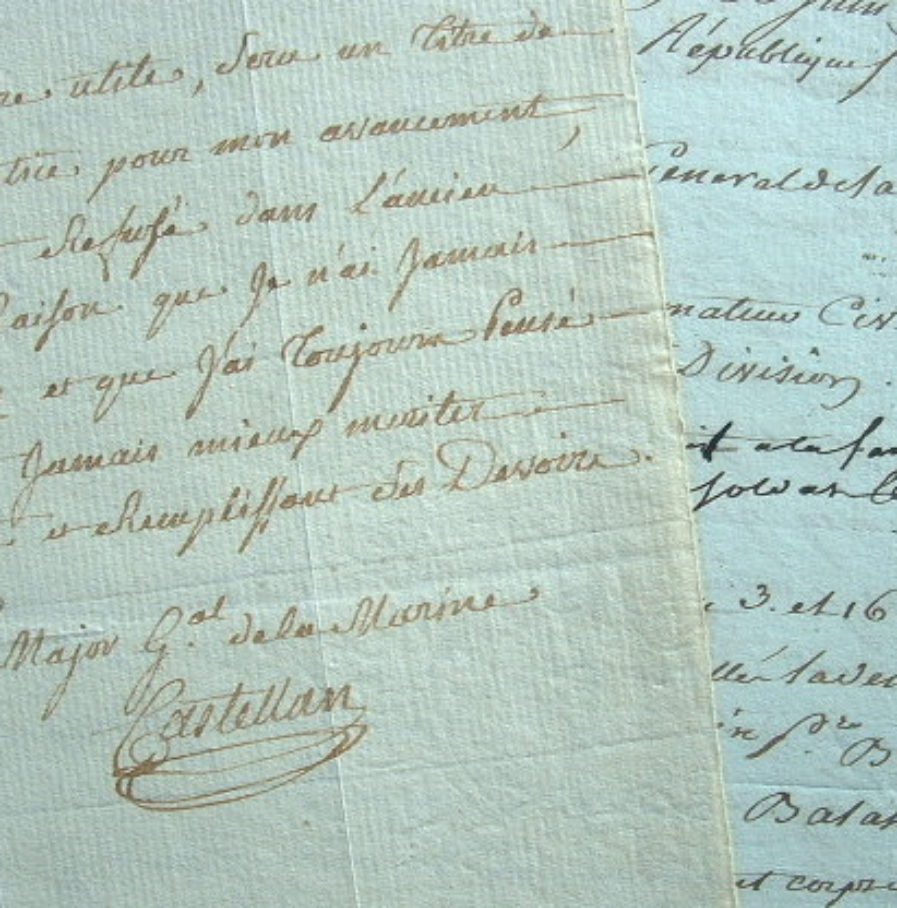 re utile, sera un titre de
trice pour mon avancement,
Refusé dans l'ancien
Raison que Je n'ai Jamais
et que J'ai Toujours Pensé
Jamais mieux meriter
et Remplissant ses Devoirs.
Major G.al de la Marine
Castellan
Juin
République f
General de la
nateur Civ
Division.
a la fa
soldat
3. et 16
in s.r B
Batai
et corps